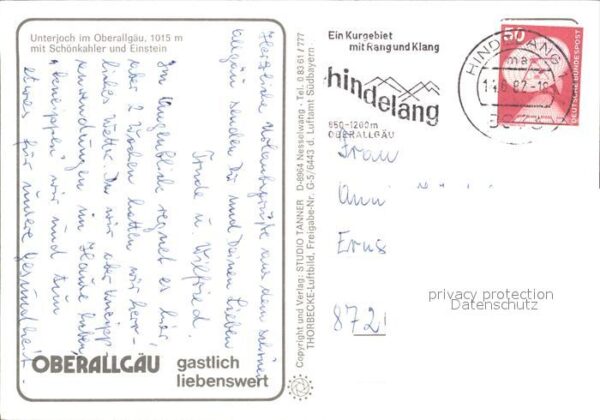 Unterjoch im Oberallgäu, 1015 m
mit Schönkahler und Einstein
Herzliche Urlaubsgrüße aus dem schönen
Allgäu senden Dir und Deinen Lieben
Trude u. Wilfried.
Im Augenblick regnet es hier,
vor 2 Wochen hatten wir herr-
liches Wetter. Da wir aber Kneipp-
anwendungen im Hause haben,
"kneippen" wir und tun
etwas für unsere Gesundheit.
OBERALLGÄU gastlich
liebenswert
Copyright und Verlag: STUDIO TANNER · D-8964 Nesselwang · Tel. 0 83 61 / 777
THORBECKE-Luftbild, Freigabe-Nr. G-5/6443 d. Luftamt Südbayern
Ein Kurgebiet
mit Rang und Klang
hindelang
850-1260m
OBERALLGÄU
HINDELANG 1
50
DEUTSCHE BUNDESPOST
Frau
Anni
Erns
8721
privacy protection
Datenschutz